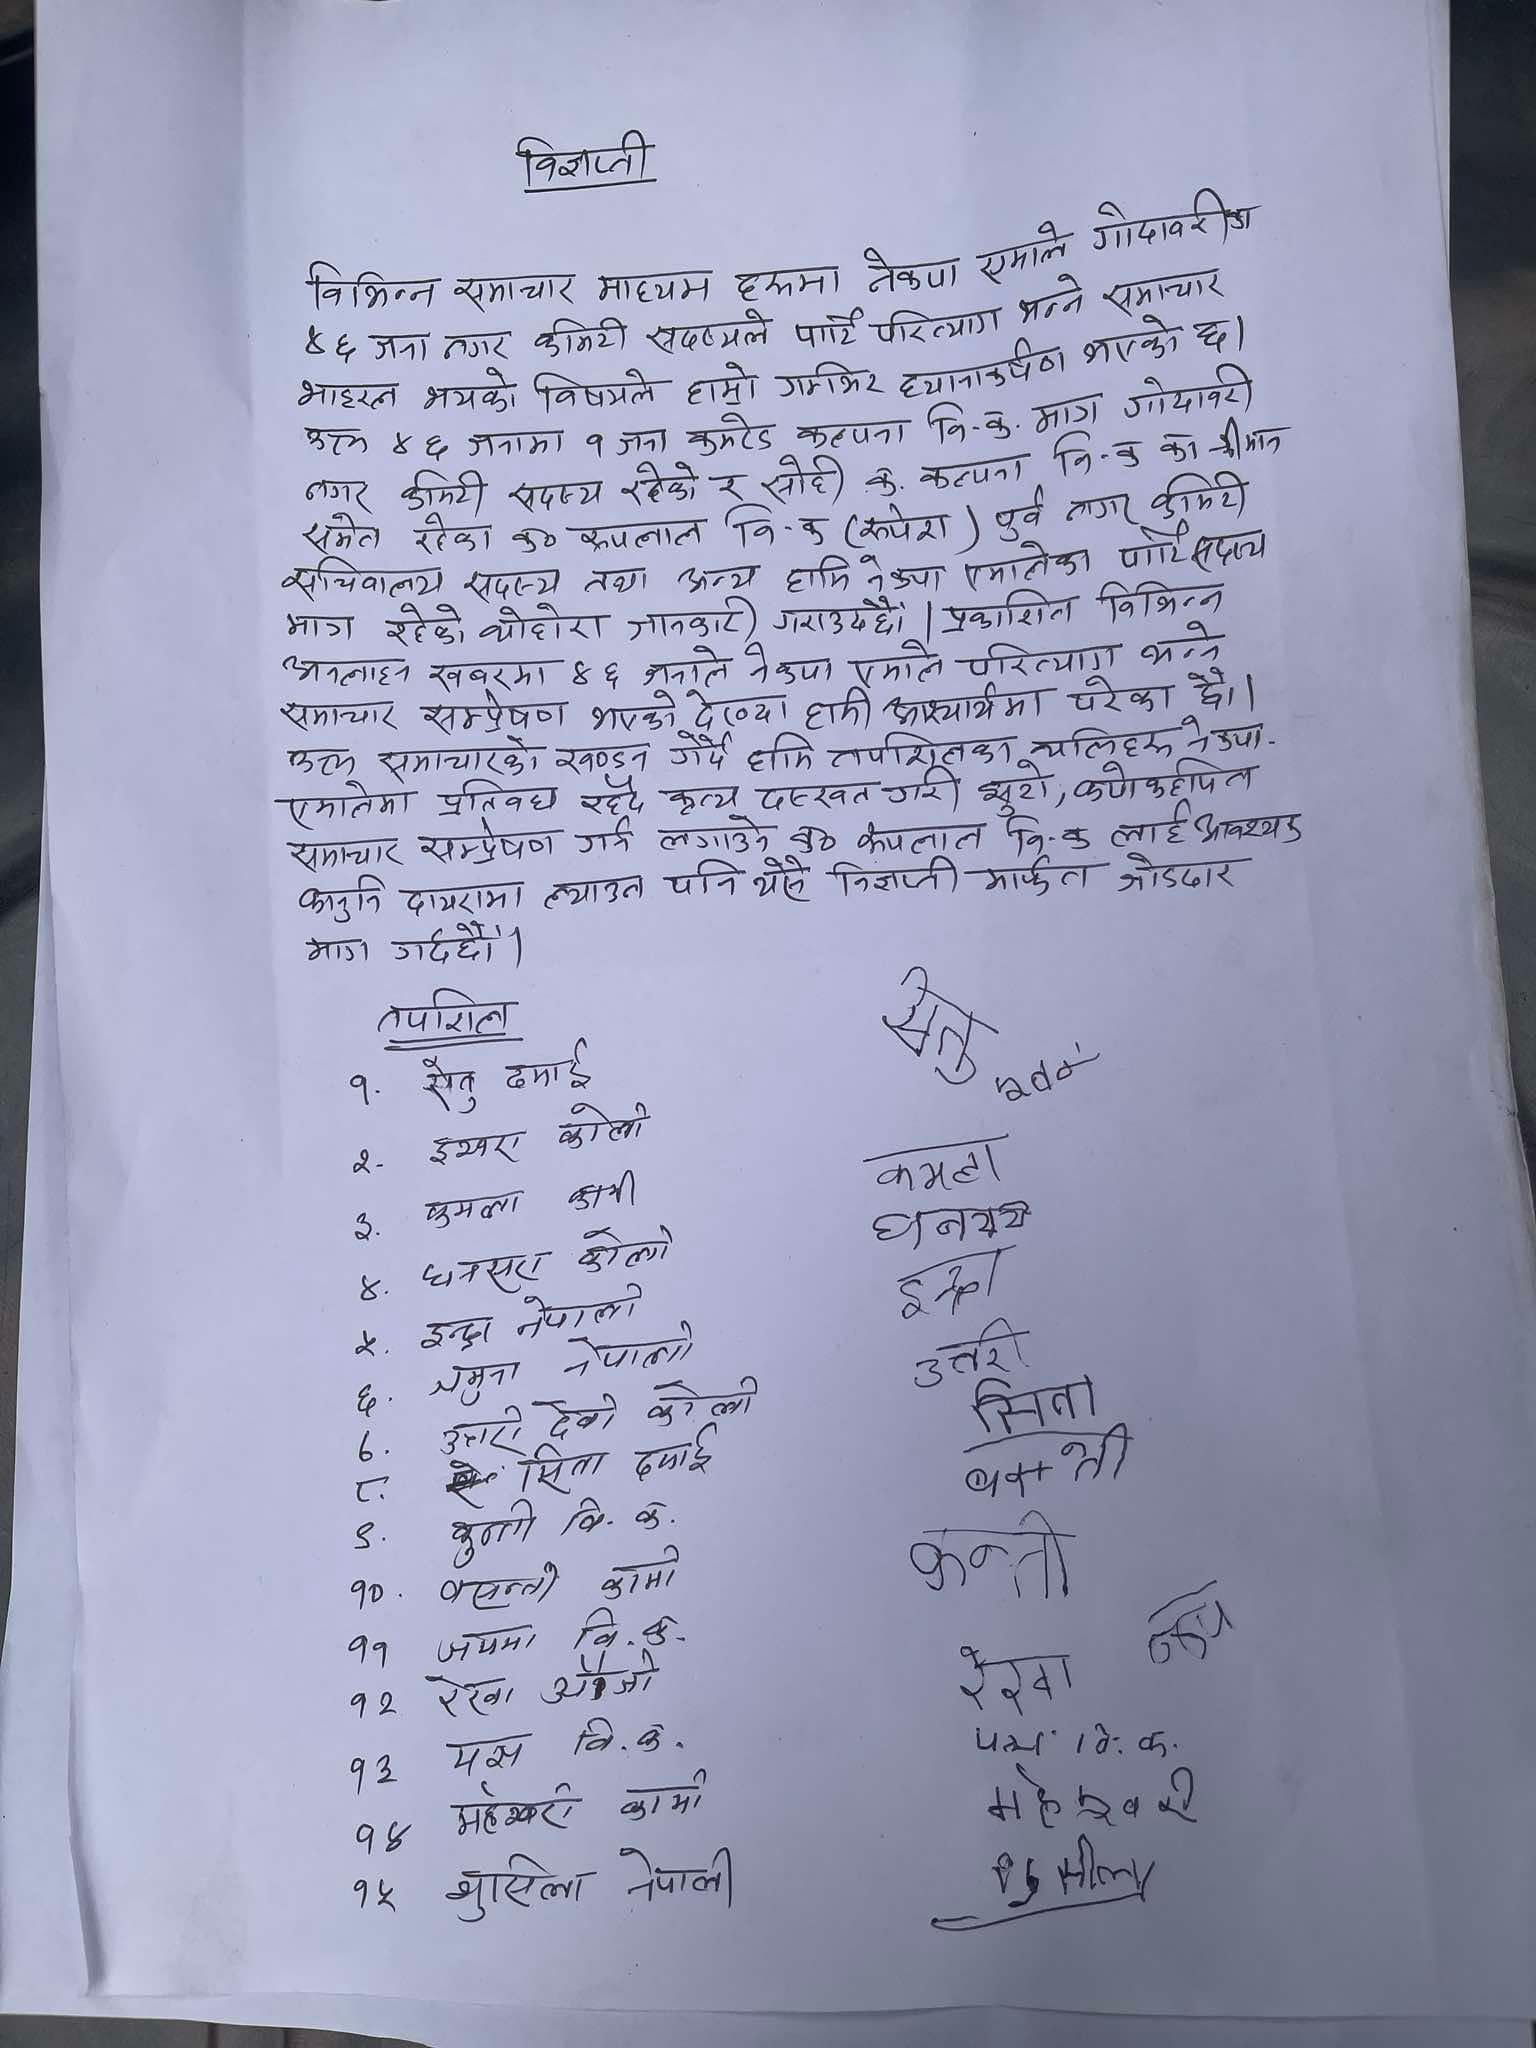 विज्ञप्ती
विभिन्न समाचार माध्यम हरुमा नेकपा एमाले गोदावरीका
४६ जना नगर कमिटी सदस्यले पार्टि परित्याग भन्ने समाचार
भाइरल भयको विषयले हाम्रो गम्भिर ध्यानाकर्षण भएको छ।
उक्त ४६ जनामा १ जना कमरेड कल्पना वि.क. मात्र गोदावरी
नगर कमिटी सदस्य रहेको र सोही क. कल्पना वि.क का श्रीमान
समेत रहेका क० रुपलाल वि.क (रुपेश) पुर्व नगर कमिटी
सचिवालय सदस्य तथा अन्य हामि नेकपा एमालेका पार्टि सदस्य
मात्र रहेको व्योहोरा जानकारी गराउदछौं। प्रकाशित विभिन्न
अनलाइन खबरमा ४६ जनाले नेकपा एमाले परित्याग भन्ने
समाचार सम्प्रेषण भएको देख्दा हामी आश्चार्यमा परेका छौं।
उक्त समाचारको खण्डन गर्दै हामि तपशिलका व्यक्तिहरु नेकपा
एमालेमा प्रतिवध्द रहँदै कृत्य दस्खत गरी झुटो, कपोकल्पित
समाचार सम्प्रेषण गर्न लगाउने क० रुपलाल वि.क लाई आवश्यक
कानुनि दायरामा ल्याउन पनि यसै विज्ञप्ती मार्फत जोडदार
माग गर्दछौं।
तपशिल
१. सेतु दमाई सेतु
२. इश्वरा कोली
३. कमला कामी कमला
४. धनसरा कोली
५. इन्द्रा नेपाली इन्द्रा
६. जमुना नेपाली
७. उत्तरी देवी कोली उत्तरी
८. सिता दमाई सिता
९. कुन्ती वि.क.
१०. वसन्ती कामी कन्ती
११ जयमा वि.क.
१२ रेखा रेखा
१३ यस वि.क. वि.क.
१४ महेश्वरी कामी महेश्वरी
१५ शुसिला नेपाली